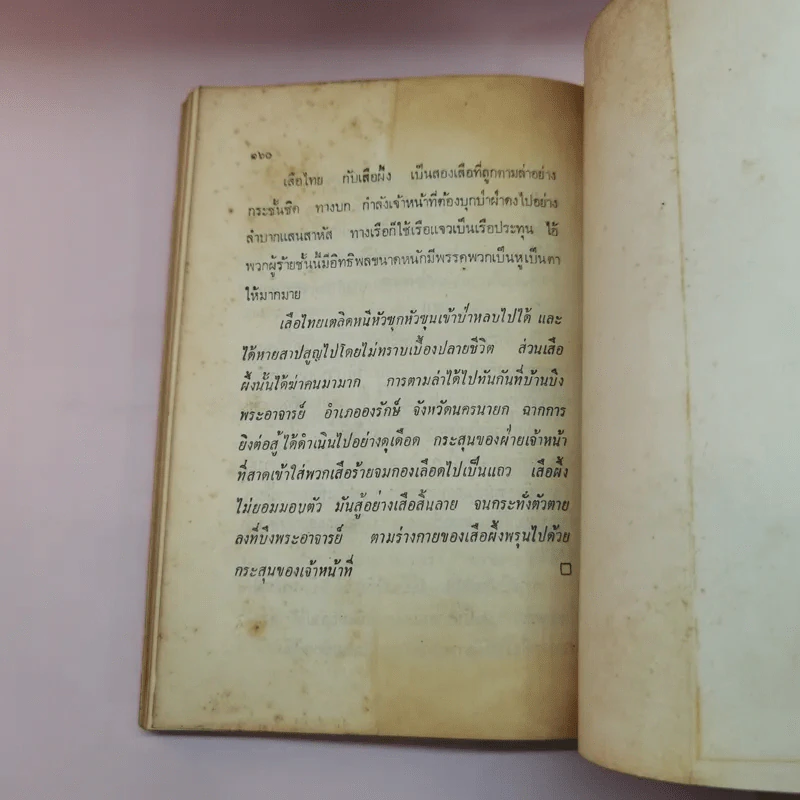 ๑๖๐
เสือไทย กับเสือผึ้ง เป็นสองเสือที่ถูกตามล่าอย่าง
กระชั้นชิด ทางบก กำลังเจ้าหน้าที่ต้องบุกป่าฝ่าดงไปอย่าง
ลำบากแสนสาหัส ทางเรือก็ใช้เรือแจวเป็นเรือประทุน ไอ้
พวกผู้ร้ายชั้นนี้มีอิทธิพลขนาดหนักมีพรรคพวกเป็นหูเป็นตา
ให้มากมาย
เสือไทยเตลิดหนีหัวซุกหัวซุนเข้าป่าหลบไปได้ และ
ได้หายสาปสูญไปโดยไม่ทราบเบื้องปลายชีวิต ส่วนเสือ
ผึ้งนั้นได้ฆ่าคนมามาก การตามล่าได้ไปทันกันที่บ้านบึง
พระอาจารย์ อำเภอองรักษ์ จังหวัดนครนายก ฉากการ
ยิงต่อสู้ได้ดำเนินไปอย่างดุเดือด กระสุนของฝ่ายเจ้าหน้า
ที่สาดเข้าใส่พวกเสือร้ายจมกองเลือดไปเป็นแถว เสือผึ้ง
ไม่ยอมมอบตัว มันสู้อย่างเสือสิ้นลาย จนกระทั่งตัวตาย
ลงที่บึงพระอาจารย์ ตามร่างกายของเสือผึ้งพรุนไปด้วย
กระสุนของเจ้าหน้าที่ □